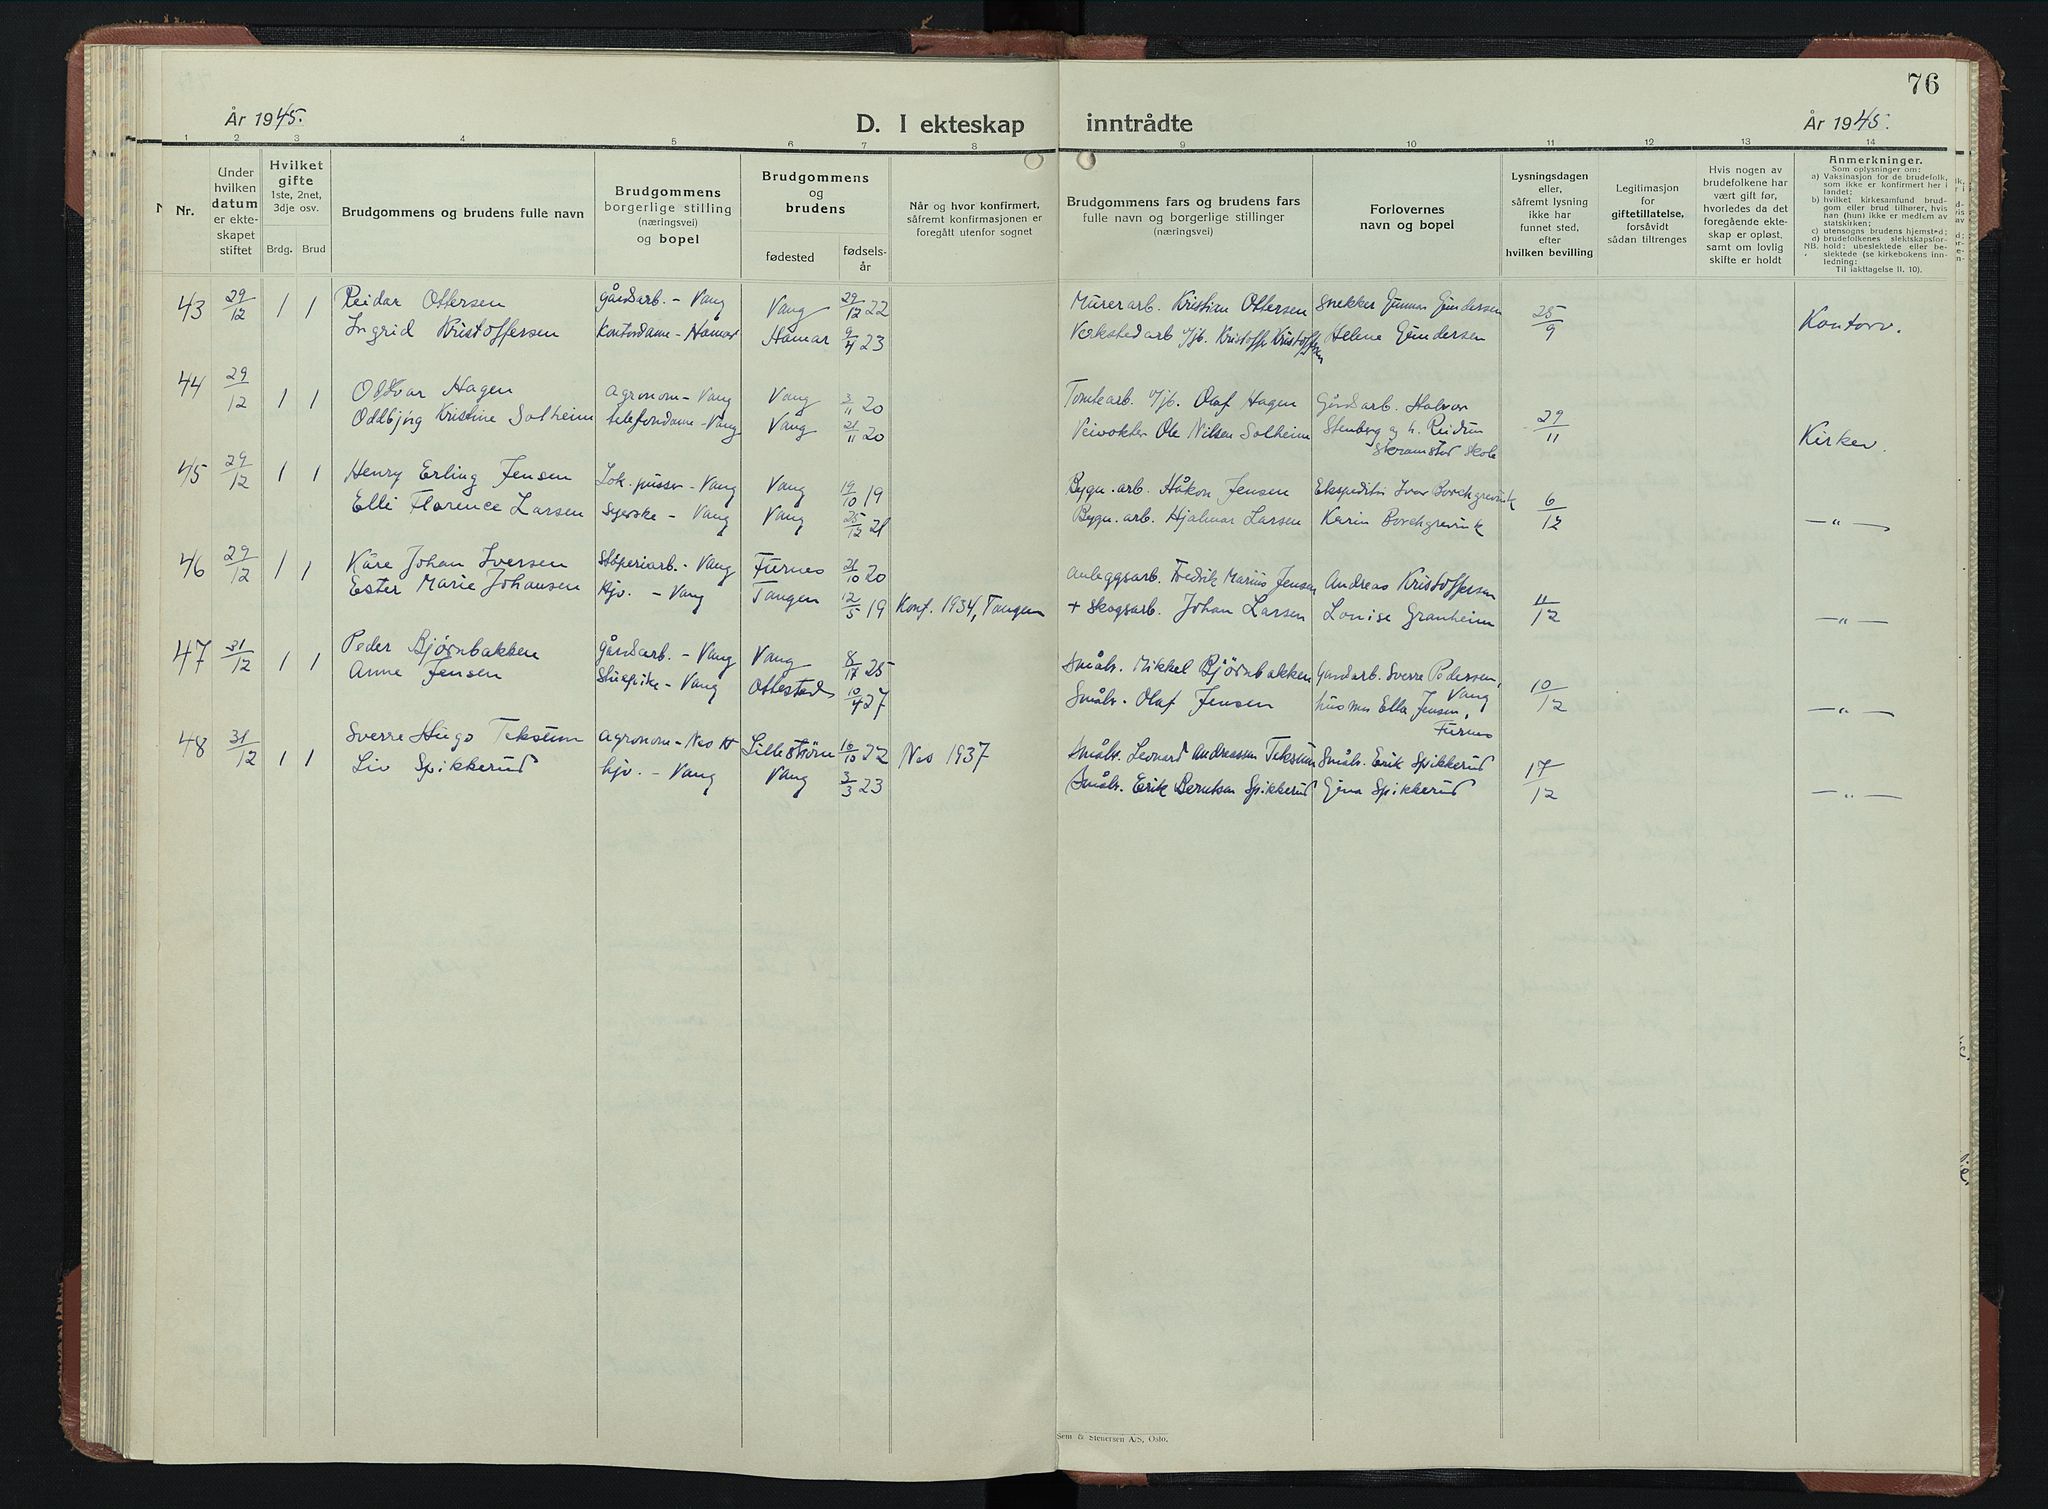 76
År 1945.
D. I ekteskap inntrådte
År 1945.
1 2 3 4 5 6 7 8 9 10 11 12 13 14
Nr.
Under hvilken datum er ekteskapet stiftet
Hvilket gifte
1ste, 2net, 3dje osv.
Brdg. Brud
Brudgommens og brudens fulle navn
Brudgommens borgerlige stilling (næringsvei) og bopel
Brudgommens og brudens
fødested
fødselsår
Når og hvor konfirmert, såfremt konfirmasjonen er foregått utenfor sognet
Brudgommens fars og brudens fars fulle navn og borgerlige stillinger (næringsvei)
Forlovernes navn og bopel
Lysningsdagen eller, såfremt lysning ikke har funnet sted, efter hvilken bevilling
Legitimasjon for giftetillatelse, forsåvidt sådan tiltrenges
Hvis nogen av brudefolkene har vært gift før, hvorledes da det foregående ekteskap er opløst, samt om lovlig skifte er holdt
Anmerkninger.
Som oplysninger om:
a) Vaksinasjon for de brudefolk, som ikke er konfirmert her i landet;
b) hvilket kirkesamfund brudgom eller brud tilhører, hvis han (hun) ikke er medlem av statskirken;
c) utensogns brudens hjemsted;
d) brudefolkenes slektskapsforhold: ubeslektede eller beslektede (se kirkebokens innledning:
NB.
Til iakttagelse II. 10).
43 29/12 1 1 Reidar Ottersen Gårdsarb. - Vang Vang 29/12 22 Murerarb. Kristian Ottersen Snekker Gunnar Gundersen 25/9 Kontorv.
Ingrid Kristoffersen Kontordame - Hamar Hamar 9/4 23 Verkstedarb v/jb. Kristoffer Kristoffersen Helene Gundersen
44 29/12 1 1 Oddvar Hagen Agronom - Vang Vang 3/11 20 Tomtearb. v/jb. Olaf Hagen Gårdsarb. Halvor
Oddbjørg Kristine Solheim telefondame - Vang Vang 21/11 20 Veivokter Ole Nilsen Solheim Stenberg og h. Reidun Skramstad Skole 29/11 Kirkev.
45 29/12 1 1 Henry Erling Jensen Lok. pusser - Vang Vang 19/10 19 Bygn. arb. Håkon Jensen Ekspeditør Ivar Borchgrevink 6/12
Elli Florence Larsen Syerske - Vang Vang 25/12 21 Bygn. arb. Hjalmar Larsen Karin Borchgrevink - " -
46 29/12 1 1 Kåre Johan Iversen Støperiarb. - Vang Furnes 21/10 20 Anleggsarb. Fredrik Marius Jensen Andreas Kristoffersen 11/12
Ester Marie Johansen Hjv. - Vang Tangen 12/5 19 Konf. 1934, Tangen + Skogsarb. Johan Larsen Lovise Granheim - " -
47 31/12 1 1 Peder Bjørnbakken Gårdsarb. - Vang Vang 8/12 25 Småbr. Mikkel Bjørnbakken Gårdarb. Sverre Pedersen, Vang 10/12
Anne Jensen Stuepike - Vang Ottestad 10/4 27 Småbr. Olaf Jensen husmor Ella Jensen, Furnes - " -
48 31/12 1 1 Sverre Hugo Teksum Agronom - Nes H Lillestrøm 16/10 22 Nes 1937 Småbr. Leonard Andreassen Teksum Småbr. Erik Spikkerud 17/12
Liv Spikkerud hjv. - Vang Vang 3/3 23 Småbr. Erik Berntsen Spikkerud Gina Spikkerud - " -
Sem & Stenersen A/S, Oslo.